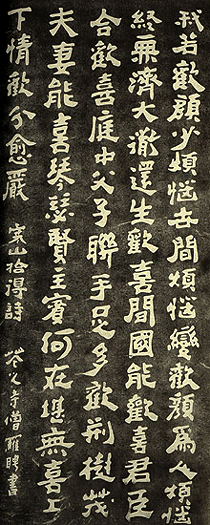 我若歡顔少煩惱世間煩惱變歡顔爲人煩惱
終無濟大道還生歡喜間國能歡喜君臣
合歡喜庭中父子聯手足多歡荊樹茂
夫妻能喜琴瑟賢主賓何在堪無喜上
下情歡分愈嚴 寒山拾得詩 花之寺僧羅聘書